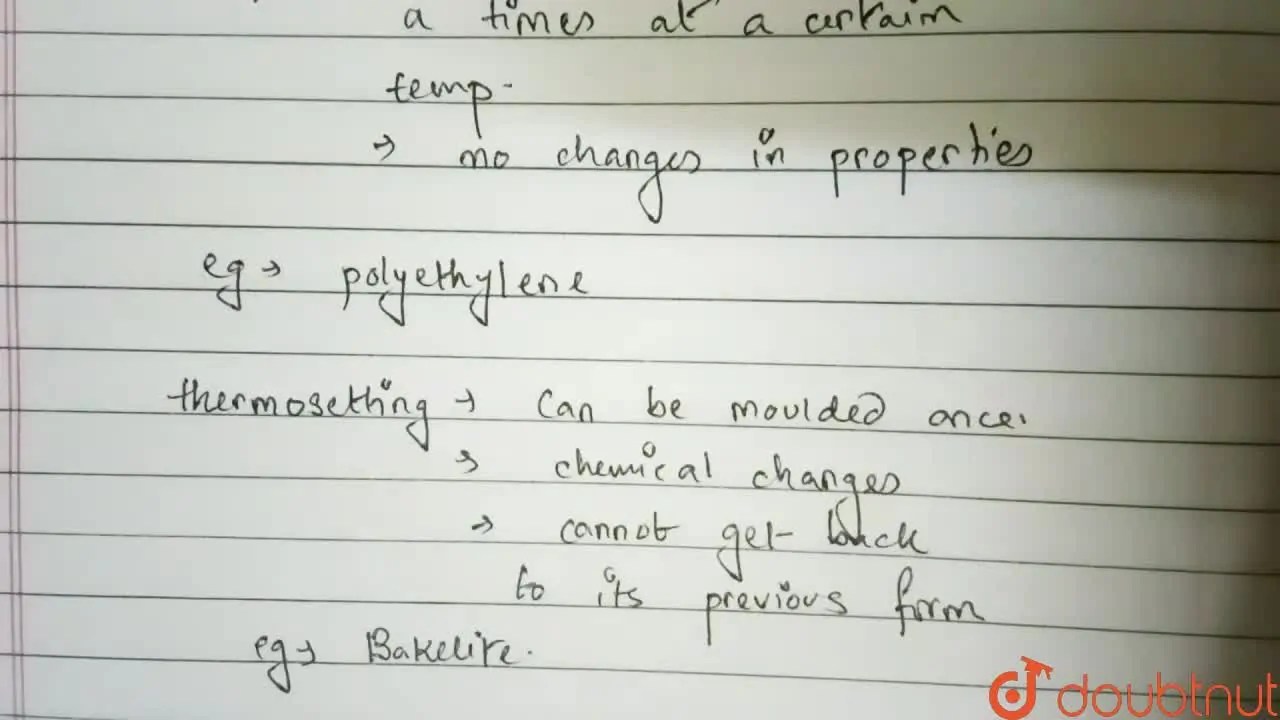 a times at a certaim
temp.
→ no changes in properties
eg → polyethylene
thermosetting → Can be moulded once.
→ chemical changes
→ cannot get back
to its previous form
eg → Bakelite.
doubtnut